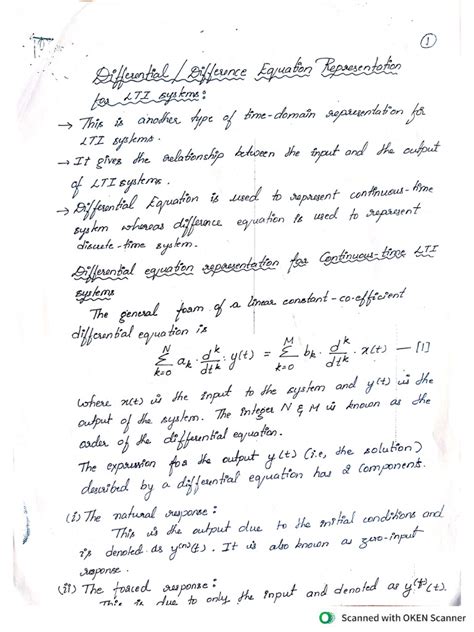 1
Differential / Difference Equation Representation
for LTI systems:
→ This is another type of time-domain representation for
LTI systems.
→ It gives the relationship between the input and the output
of LTI systems.
→ Differential Equation is used to represent continuous-time
system whereas difference equation is used to represent
discrete-time system.
Differential equation representation for Continuous-time LTI
systems
The general form of a linear constant-co-efficient
differential equation is
N∑k=0 aₖ · dᵏ/dtᵏ · y(t) = M∑k=0 bₖ · dᵏ/dtᵏ · x(t) — [1]
Where x(t) is the input to the system and y(t) is the
output of the system. The integer N & M is known as the
order of the differential equation.
The expression for the output y(t) (i.e, the solution)
described by a differential equation has 2 components.
(i) The natural response:
This is the output due to the initial conditions and
is denoted as y⁽ⁿ⁾(t). It is also known as zero-input
response.
(ii) The forced response:
This is due to only the input and denoted as y⁽ᶠ⁾(t).
Scanned with OKEN Scanner